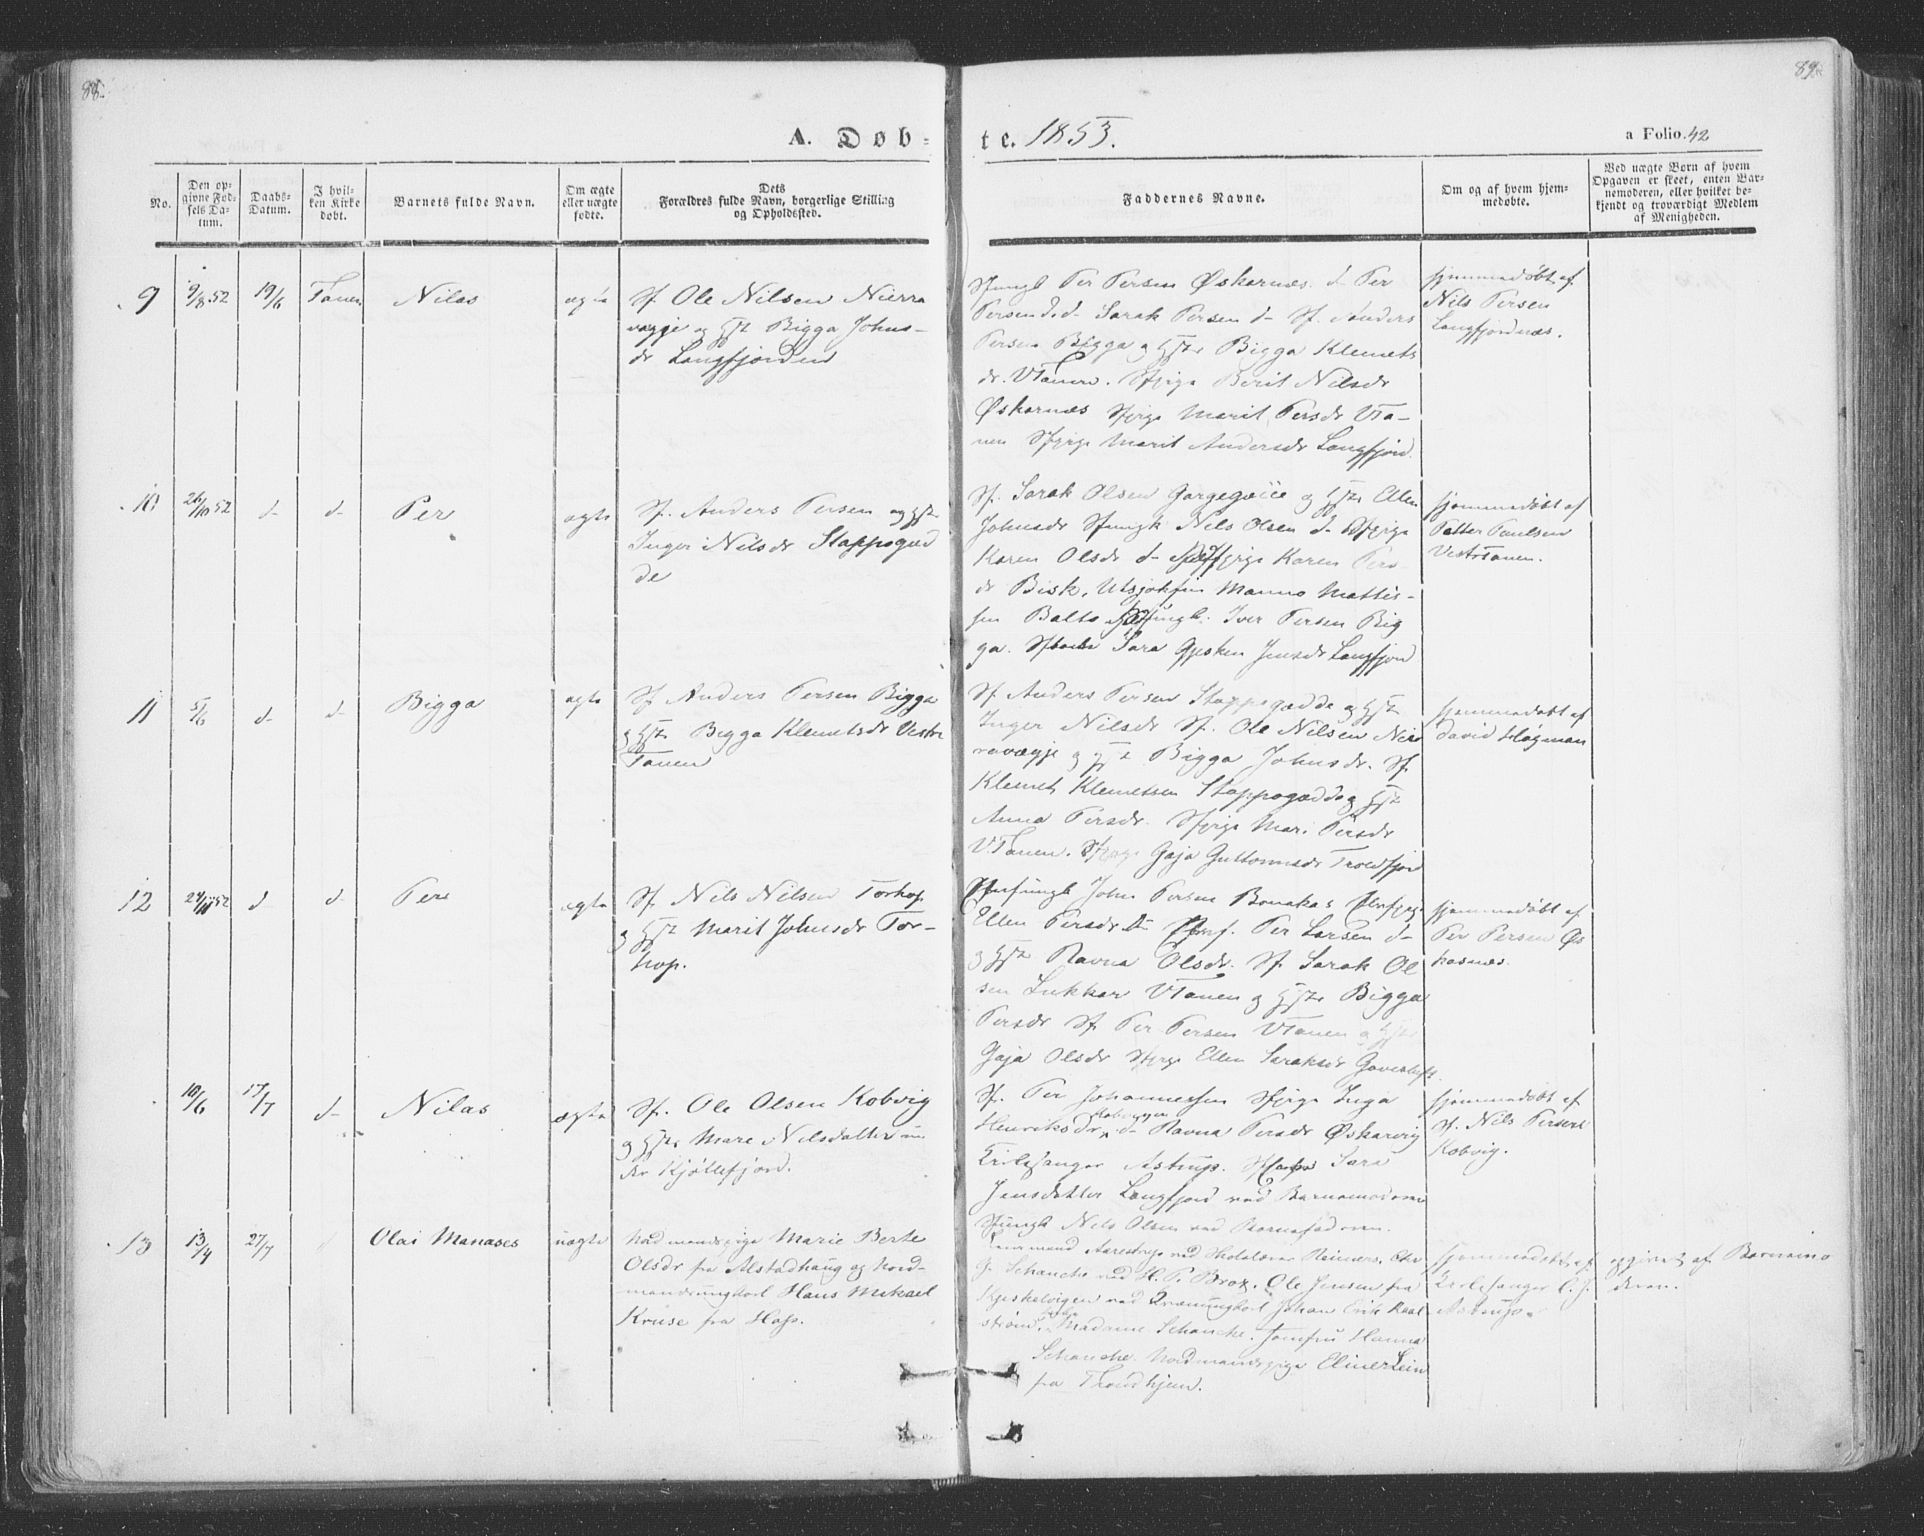 88.
89.
A. Døb-
te. 1853.
a Folio. 42
No.
Den op-
givne Fød-
sels Da-
tum.
Daabs-
Datum.
I hvil-
ken Kirke
døbt.
Barnets fulde Navn.
Om ægte
eller uægte
fødte.
Dets
Forældres fulde Navn, borgerlige Stilling
og Opholdssted.
Faddernes Navne.
Om og af hvem hjem-
medøbte.
Ved uægte Børn af hvem
Opgaven er skeet, enten Bar-
nemoderen, eller hvilket be-
kjendt og troværdigt Medlem
af Menigheden.
9
9/8 52
19/6
Tanen
Nilas
ægte
Sf. Ole Nilsen Nierra
vagje og Hst Bigga Johns-
dr Langfjorden
Sfungk Per Persen Øskarnæs. d- Per
Persen d. d- Sarak Persen d- Sf. Anders
Persen Bigga og Hstr Bigga Klemets
dr. VTanen. Sfpige Berit Nilsdr
Øskarnæs Sfpige Marit Persdr VTa-
nen Sfpige Marit Andersdr Langfjord.
hjemmedøbt af
Nils Persen
Langfjordnæs.
10
26/10 52
d-
d-
Per
ægte
Sf. Anders Persen og Hstr
Inger Nilsdr Stappogæd
de
Sf. Sarak Olsen og Hstr Ellen
Johnsdr Sfungk Nils Olsen d- Sfpige
Karen Olsdr d- Sfpige Karen Pers
dr Bisk. Utsjokfin Manno Mattis-
sen Balto Sfungk. Iver Persen Big
ga. Sara Gjesken Jensdr Langfjord
hjemmedøbt af
Petter Paulsen
Vestrtanen.
11
5/6
d-
d-
Bigga
ægte
Sf Anders Persen Bigga
og Hstr Bigga Klemetsdr Vestre
Tanen
Sf Anders Persen Stappogædde og Hst
Inger Nilsdr Sf. Ole Nilsen Nier
ravagje og Hst Bigga Johnsdr. Sf.
Klemet Klemetsen Stappogædde og Hst
Anna Persdr. Sfpige Mari Persdr
V.Tanen. Sfpige Gaja Guttormsdr Troldfjor
hjemmedøbt af
David Hagman
12
24/11 52
d
d
Per
ægte
Sf. Nils Nilsen Torhop
og Hst Marit Johnsdr Tor-
hop.
John Persen Bonakas
Ellen Persdr d- Per Larsen d-
og Hst Ravna Olsdr. Sf. Sarak Ol
sen Lukkar VTanen og Hstr Bigga
Persdr Sf Per Persen VTanen og Hstr
Gaja Olsdr Sfpige Ellen Saraksdr
hjemmedøbt af
Per Persen Øs
karnæs.
10/6
17/7
d-
Nilas
ægte
Sf. Ole Olsen Kobvig
og Hstr Mare Nilsdatter un
der Kjøllefjord.
Sf. Per Johannessen Sfpige Inga
Henriksdr d- Ravna Persdr Øskarvig
Kirkesanger Astrup. Sara
Jensdatter Langfjord ved Barnemoderen
Sfungk Nils Olsen ved Barnefaderen.
hjemmedøbt af
Sf. Nils Persen
Kobvig.
13
13/4
27/7
Olai Manases
uægte
Nordmandspige Marie Berte
Olsdr fra Alstadhaug og Nord-
mandsungkarl Hans Mikael
Kruse fra Hop.
Lensmand Aarestrup ved Skolelærer Reiners, Chr
G. Schanche ved H. P. Brox. Ole Jensen fra
Kjeskelvigen ved Johan Erik Raal
strøm. Madame Schanche. Jomfru Hanna
Schanche. Nordmandspige Elinerlein
fra Trondhjem.
hjemmedøbt af
Kirkesanger C. J.
Astrup.
opgivet af Barnemo
deren.